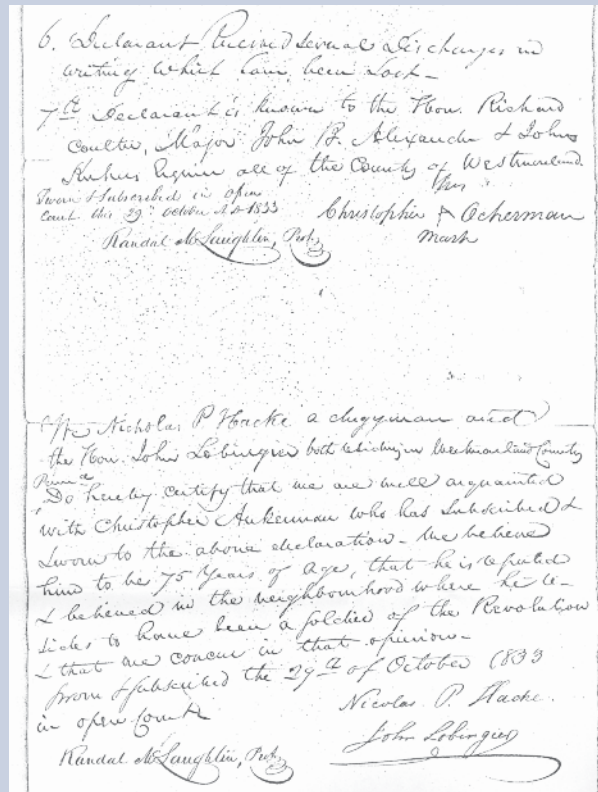 6. Declarant Received several Discharges in
writing which have been Lost –
7th Declarant is known to the Hon. Richard
Coulter, Major John B. Alexander & John
Kuhns Esquire all of the County of Westmoreland.
Sworn & Subscribed in open
Court this 29th October AD 1833
his
Christopher A Ockerman
mark
Randal McLaughlin, Proty
We Nicholas P Hacke a clergyman and
the Hon. John Lobingier both residing in Westmoreland County
Penna
Do hereby certify that we are well acquainted
with Christopher Aukerman who has Subscribed &
sworn to the above declaration – We believe
him to be 75 Years of age, that he is reputed
& believed in the neighbourhood where he re-
sides to have been a soldier of the Revolution
& that we concur in that opinion –
Sworn & Subscribed the 29th of October 1833
in open Court
Nicolas P. Hacke.
John Lobingier
Randal McLaughlin, Proty